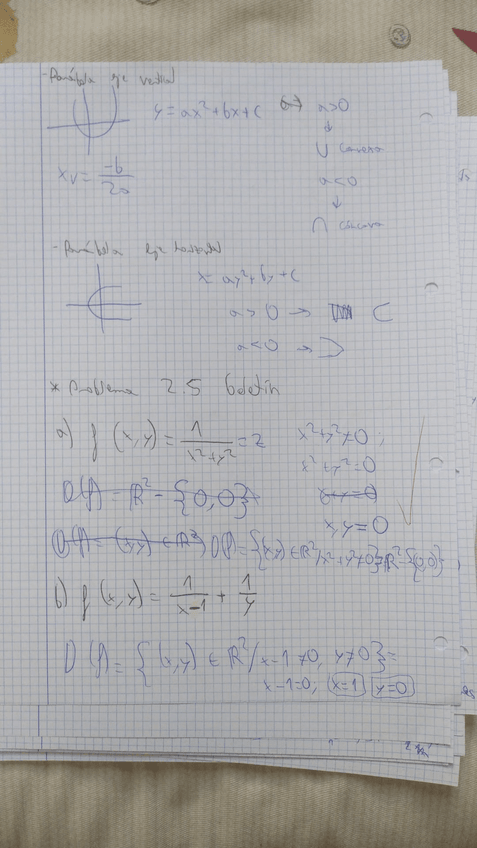 - Parábola eje vertical
y = ax²+bx+c a>0
↓
∪ convexa
xv = -b/2a
a<0
↓
∩ cóncava
- Parábola eje horizontal
x = ay²+by+c
a>0 → ⊂
a<0 → ⊃
* Problema 2.5 boletín
a) f(x,y) = 1/(x²+y²) = z x²+y²≠0;
x²+y²=0
D(f) = ℝ² - {0,0}
x,y=0
D(f) = (x,y) ∈ ℝ² D(f) = {(x,y) ∈ ℝ²/x²+y²≠0} = ℝ²-{(0,0)}
b) f(x,y) = 1/(x-1) + 1/y
D(f) = {(x,y) ∈ ℝ²/x-1≠0, y≠0} =
x-1=0, x=1 y=0